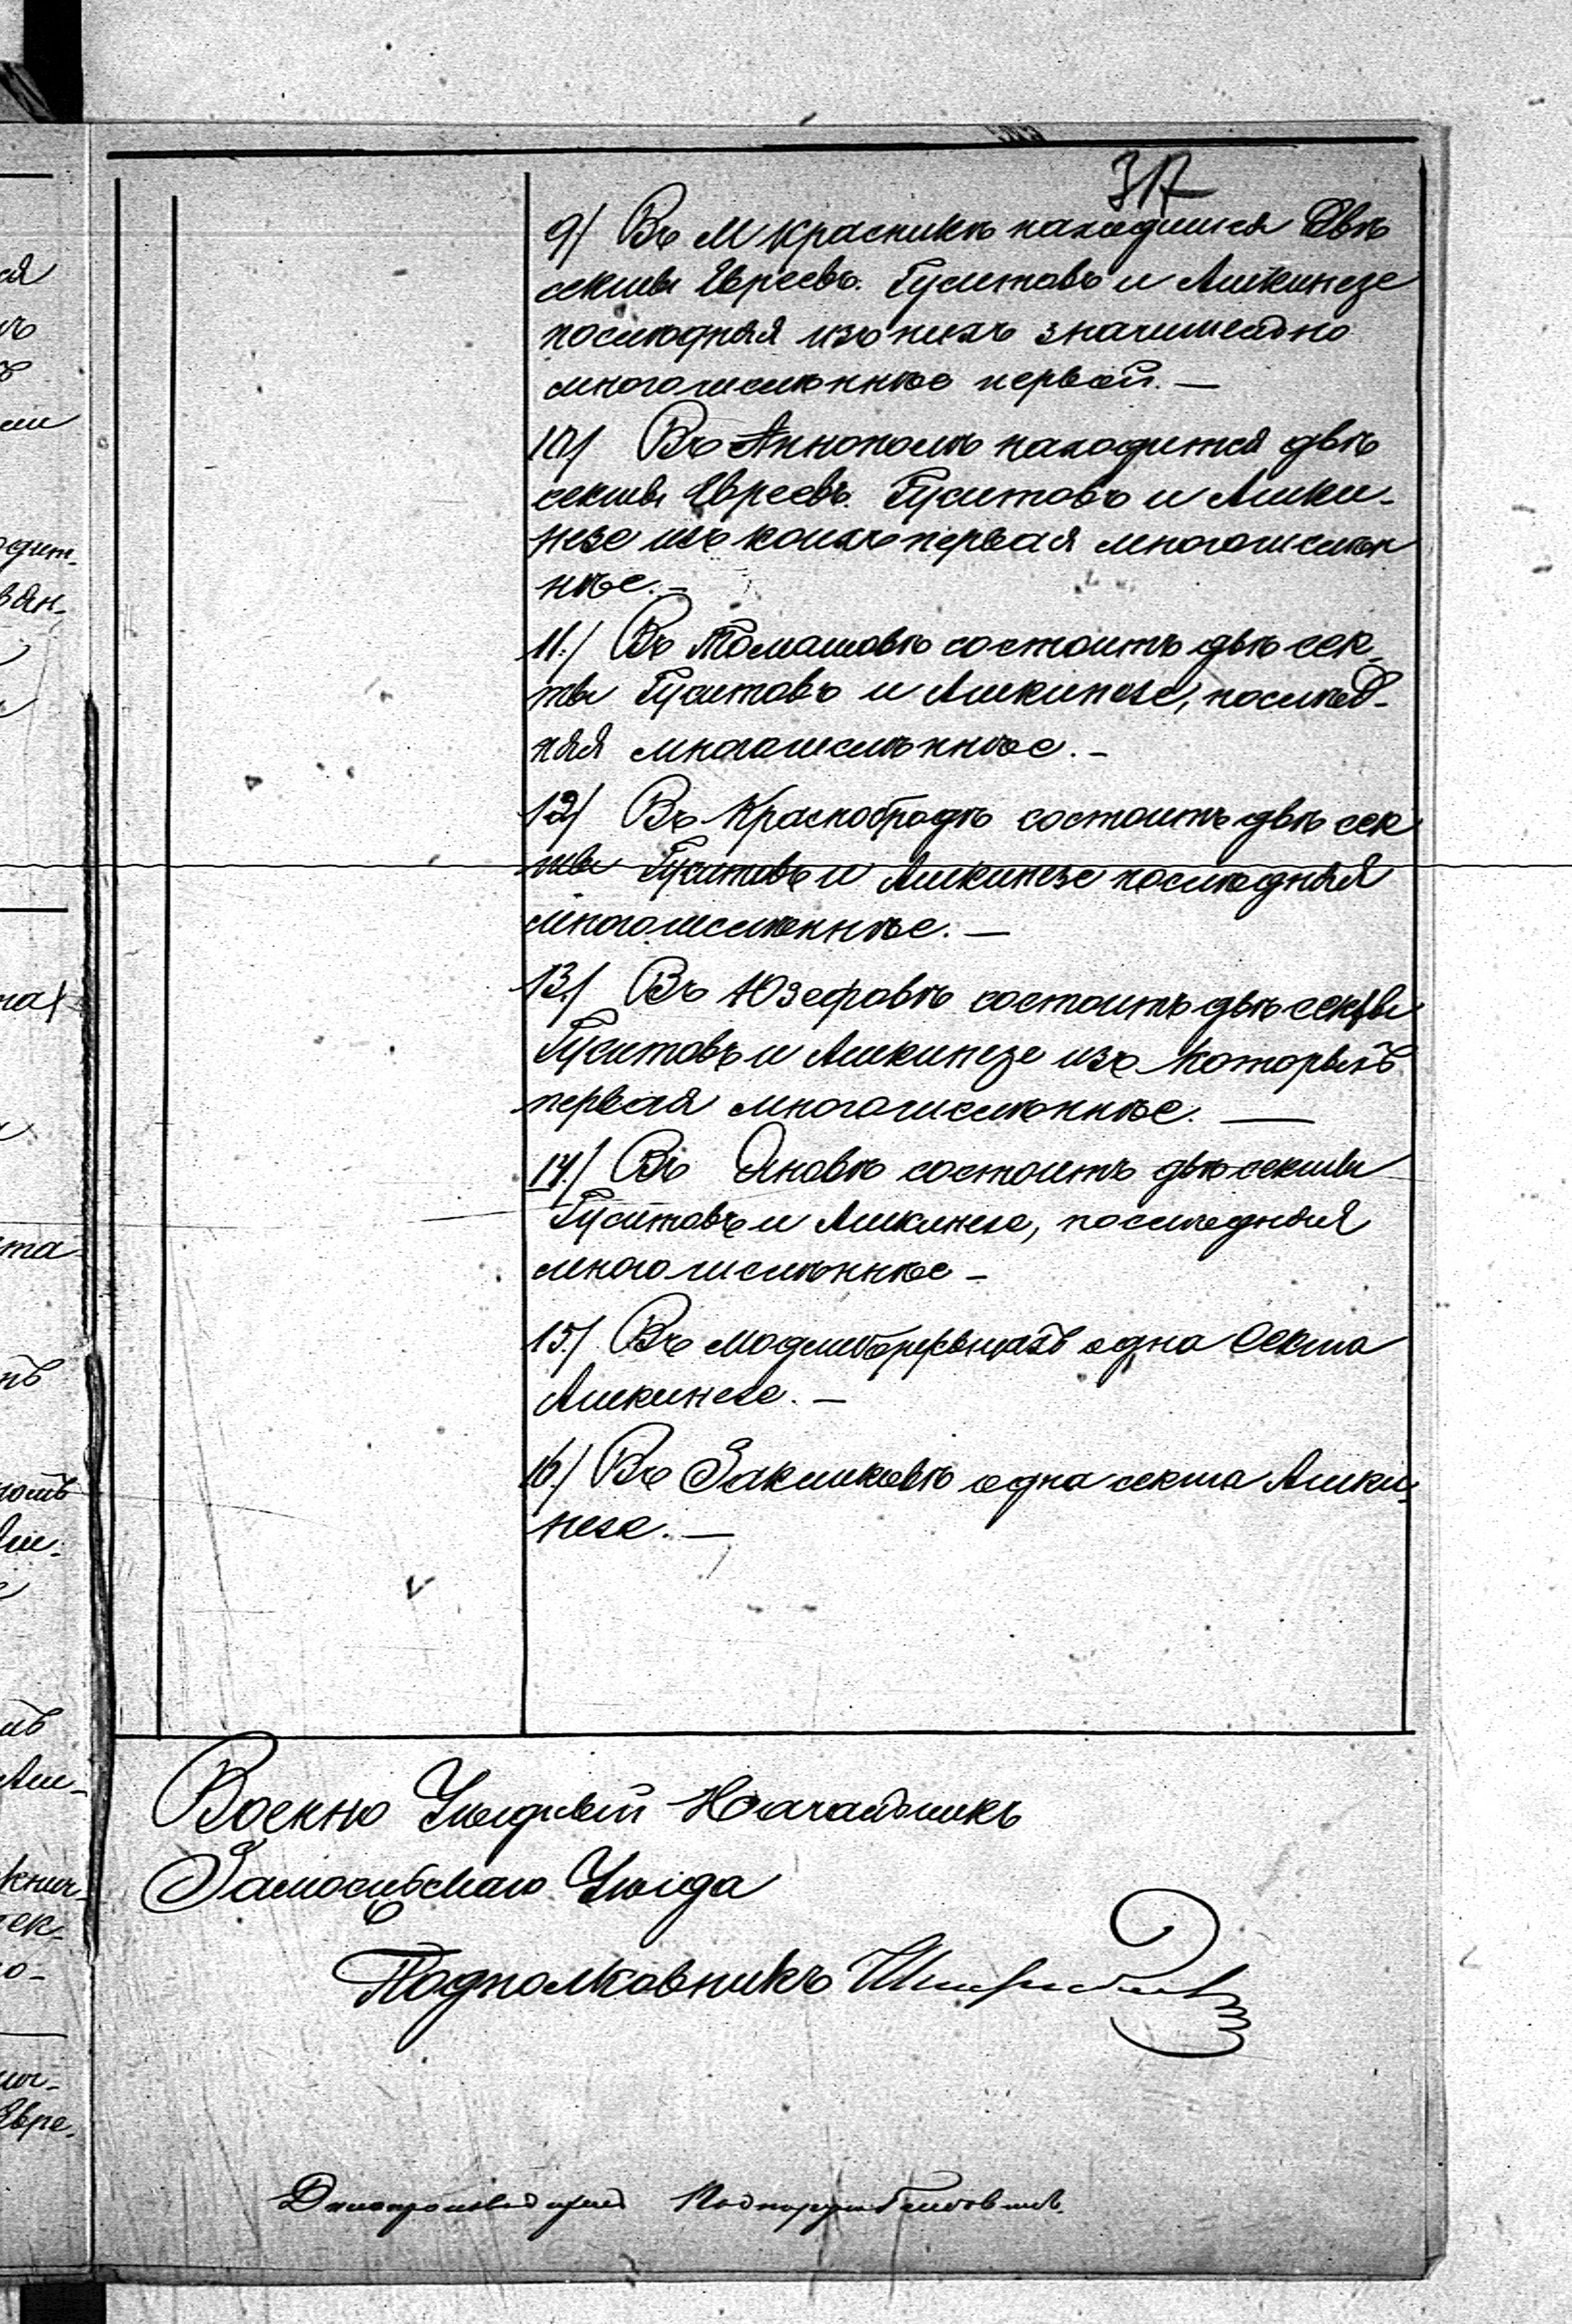 37
9/ Въ М Красникѣ находится двѣ
секты Евреевъ. Гуситовъ и Ашкинезе
послѣдняя изъ нихъ значительно
многочислѣннѣе первой. —
10/ Въ Аннополѣ находится двѣ
секты Евреевъ. Гуситовъ и Ашки-
незе изъ коихъ первая многочислѣн
нѣе. —
11./ Въ Томашовѣ состоитъ двѣ сек-
ты Гуситовъ и Ашкинезе, послѣд-
няя многочислѣннѣе. —
12/ Въ Краснобродѣ состоитъ двѣ сек
ты Гуситовъ и Ашкинезе послѣдняя
многочислѣннѣе. —
13/ Въ Юзефовѣ состоитъ двѣ секты
Гуситовъ и Ашкинезе изъ которыхъ
первая многочислѣннѣе. —
14/ Въ Яновѣ состоитъ двѣ секты
Гуситовъ и Ашкинезе, послѣдняя
многочислѣннѣе —
15/ Въ Модлиборжыцахъ одна секта
Ашкинезе. —
16/ Въ Закликовѣ одна секта Ашки-
незе. —
Военно Уѣздный Начальникъ
Замосцьскаго Уѣзда
Подполковникъ
Дѣлопроизводитель